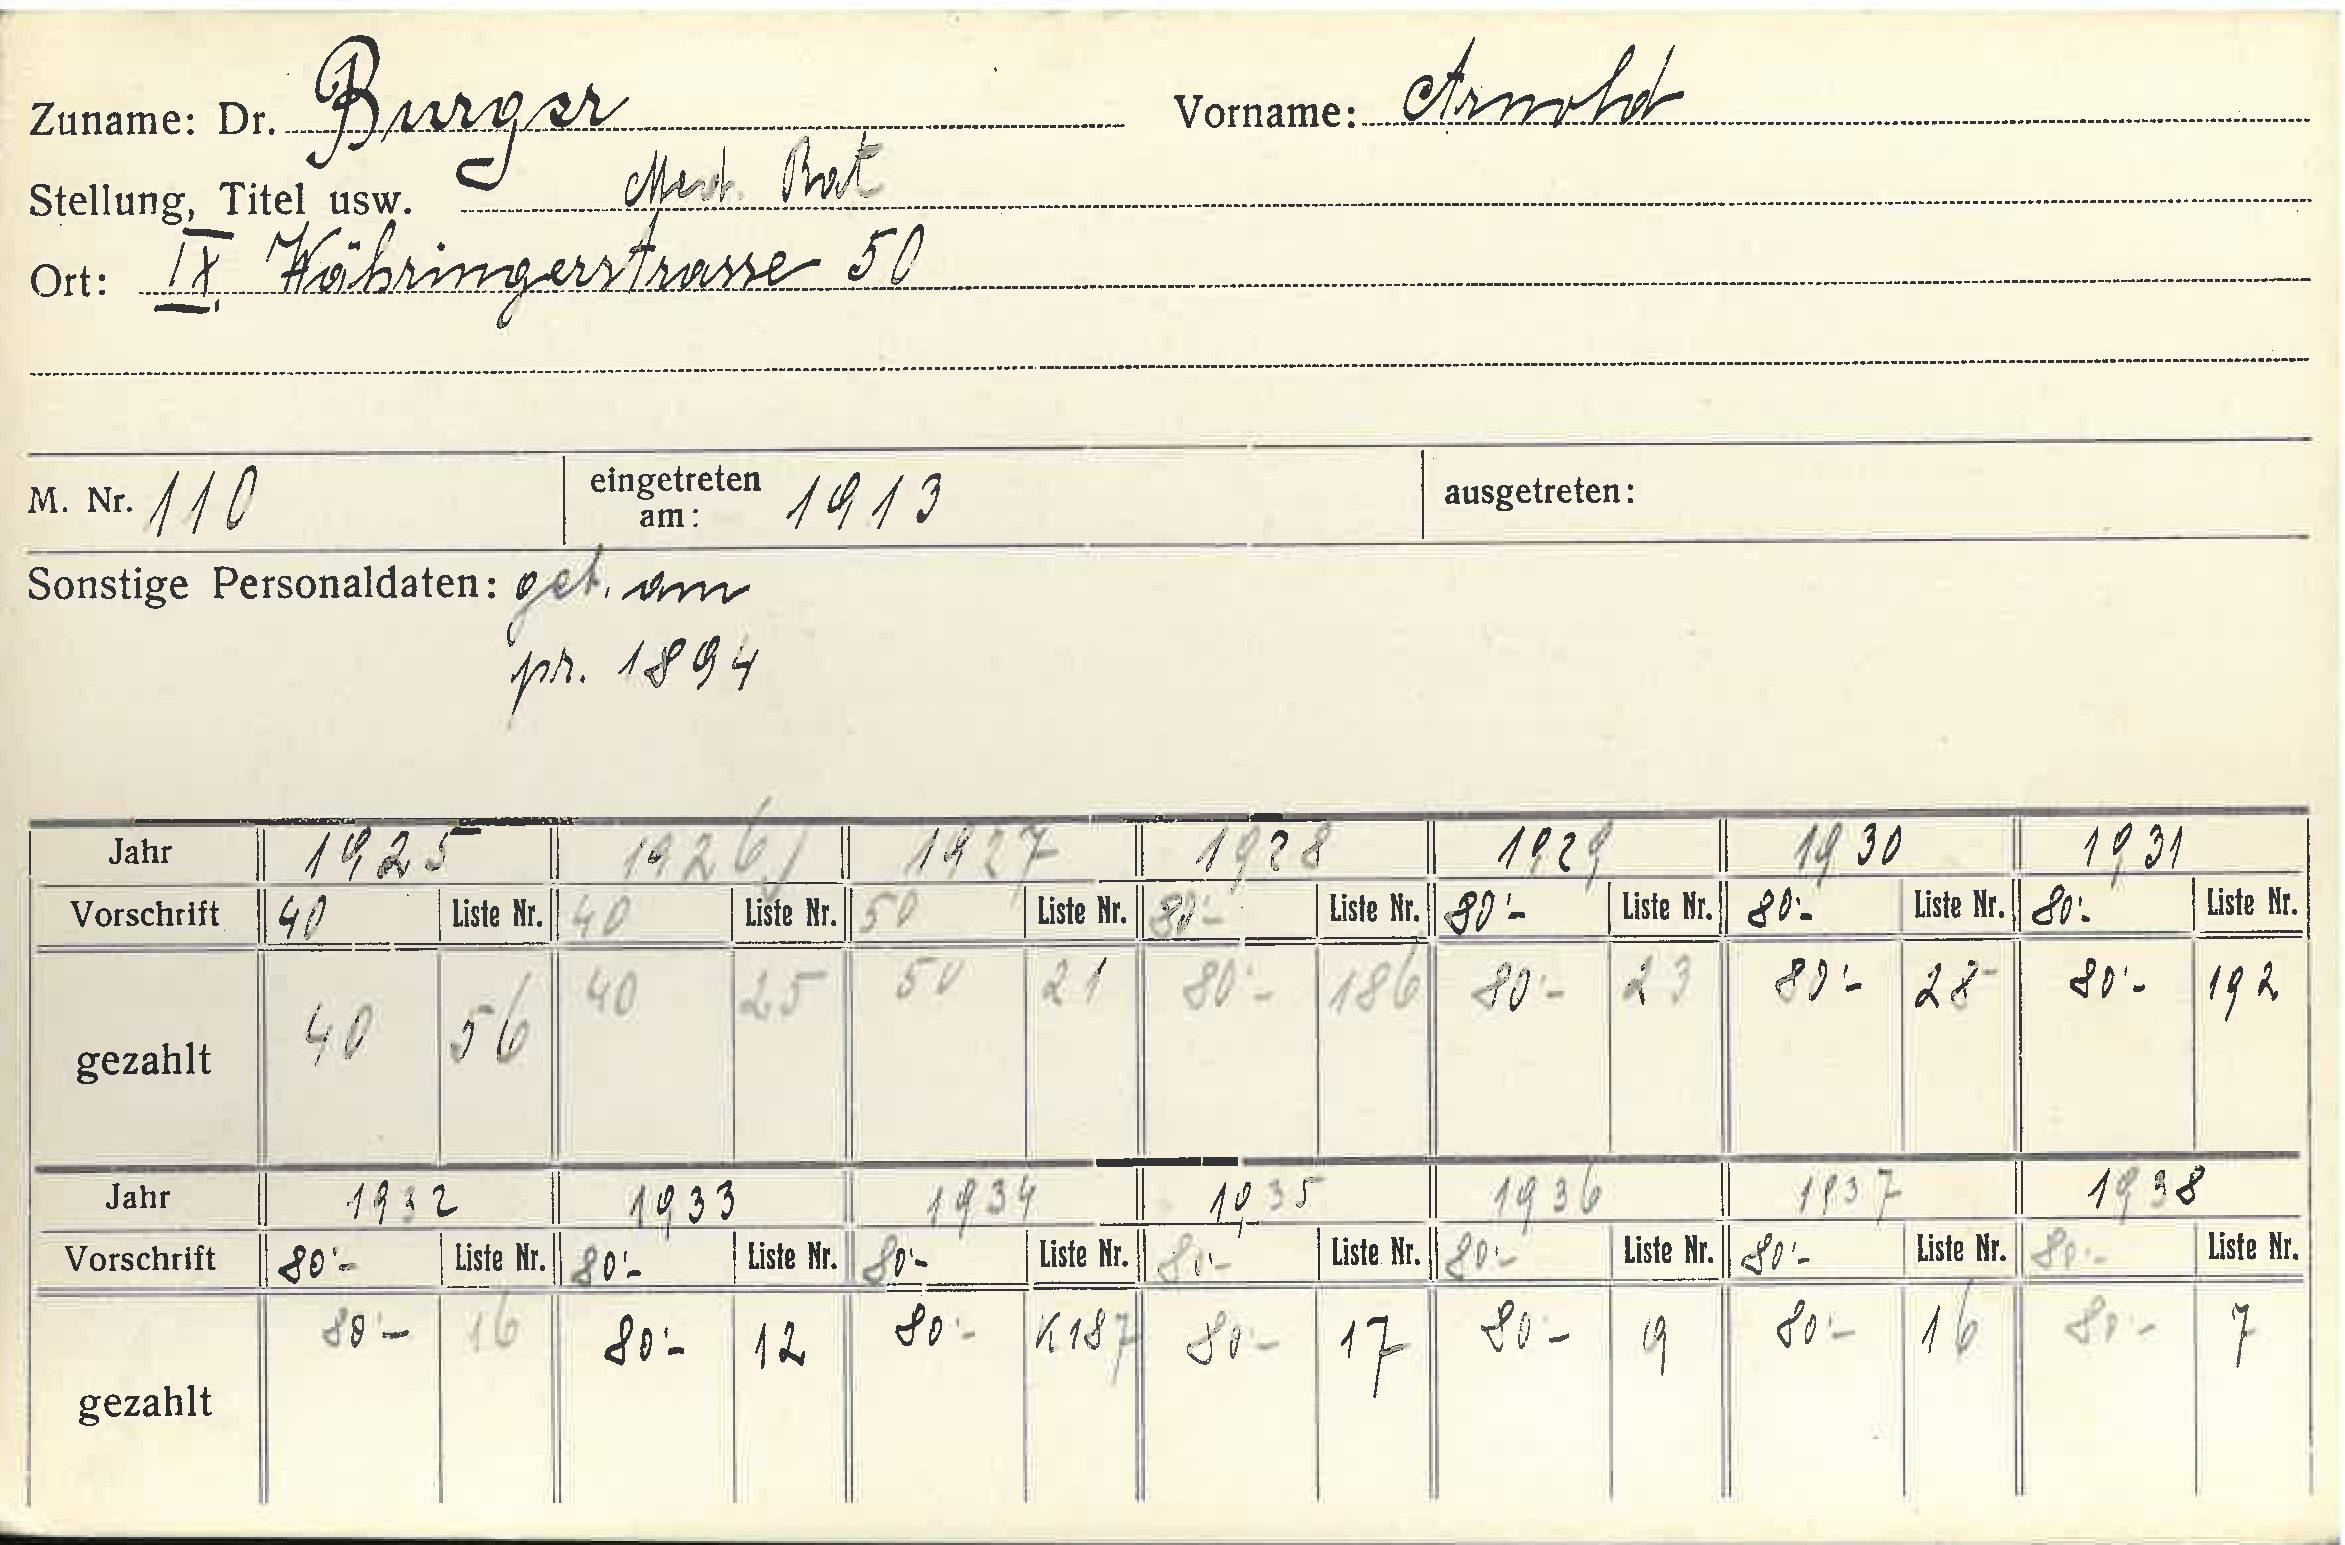 Zuname: Dr. Burger Vorname: Arnold
Stellung, Titel usw. Med. Rat
Ort: IX. Währingerstrasse 50
M. Nr. 110 eingetreten am: 1913 ausgetreten:
Sonstige Personaldaten: geb. am
pr. 1894
Jahr 1925 1926 1927 1928 1929 1930 1931
Vorschrift 40 Liste Nr. 40 Liste Nr. 50 Liste Nr. 80·- Liste Nr. 80·- Liste Nr. 80·- Liste Nr. 80·- Liste Nr.
gezahlt 40 56 40 25 50 21 80·- 186 80·- 23 80·- 28 80·- 192
Jahr 1932 1933 1934 1935 1936 1937 1938
Vorschrift 80·- Liste Nr. 80·- Liste Nr. 80·- Liste Nr. 80·- Liste Nr. 80·- Liste Nr. 80·- Liste Nr. 80·- Liste Nr.
gezahlt 80·- 16 80·- 12 80·- K187 80·- 17 80·- 9 80·- 16 80·- 7